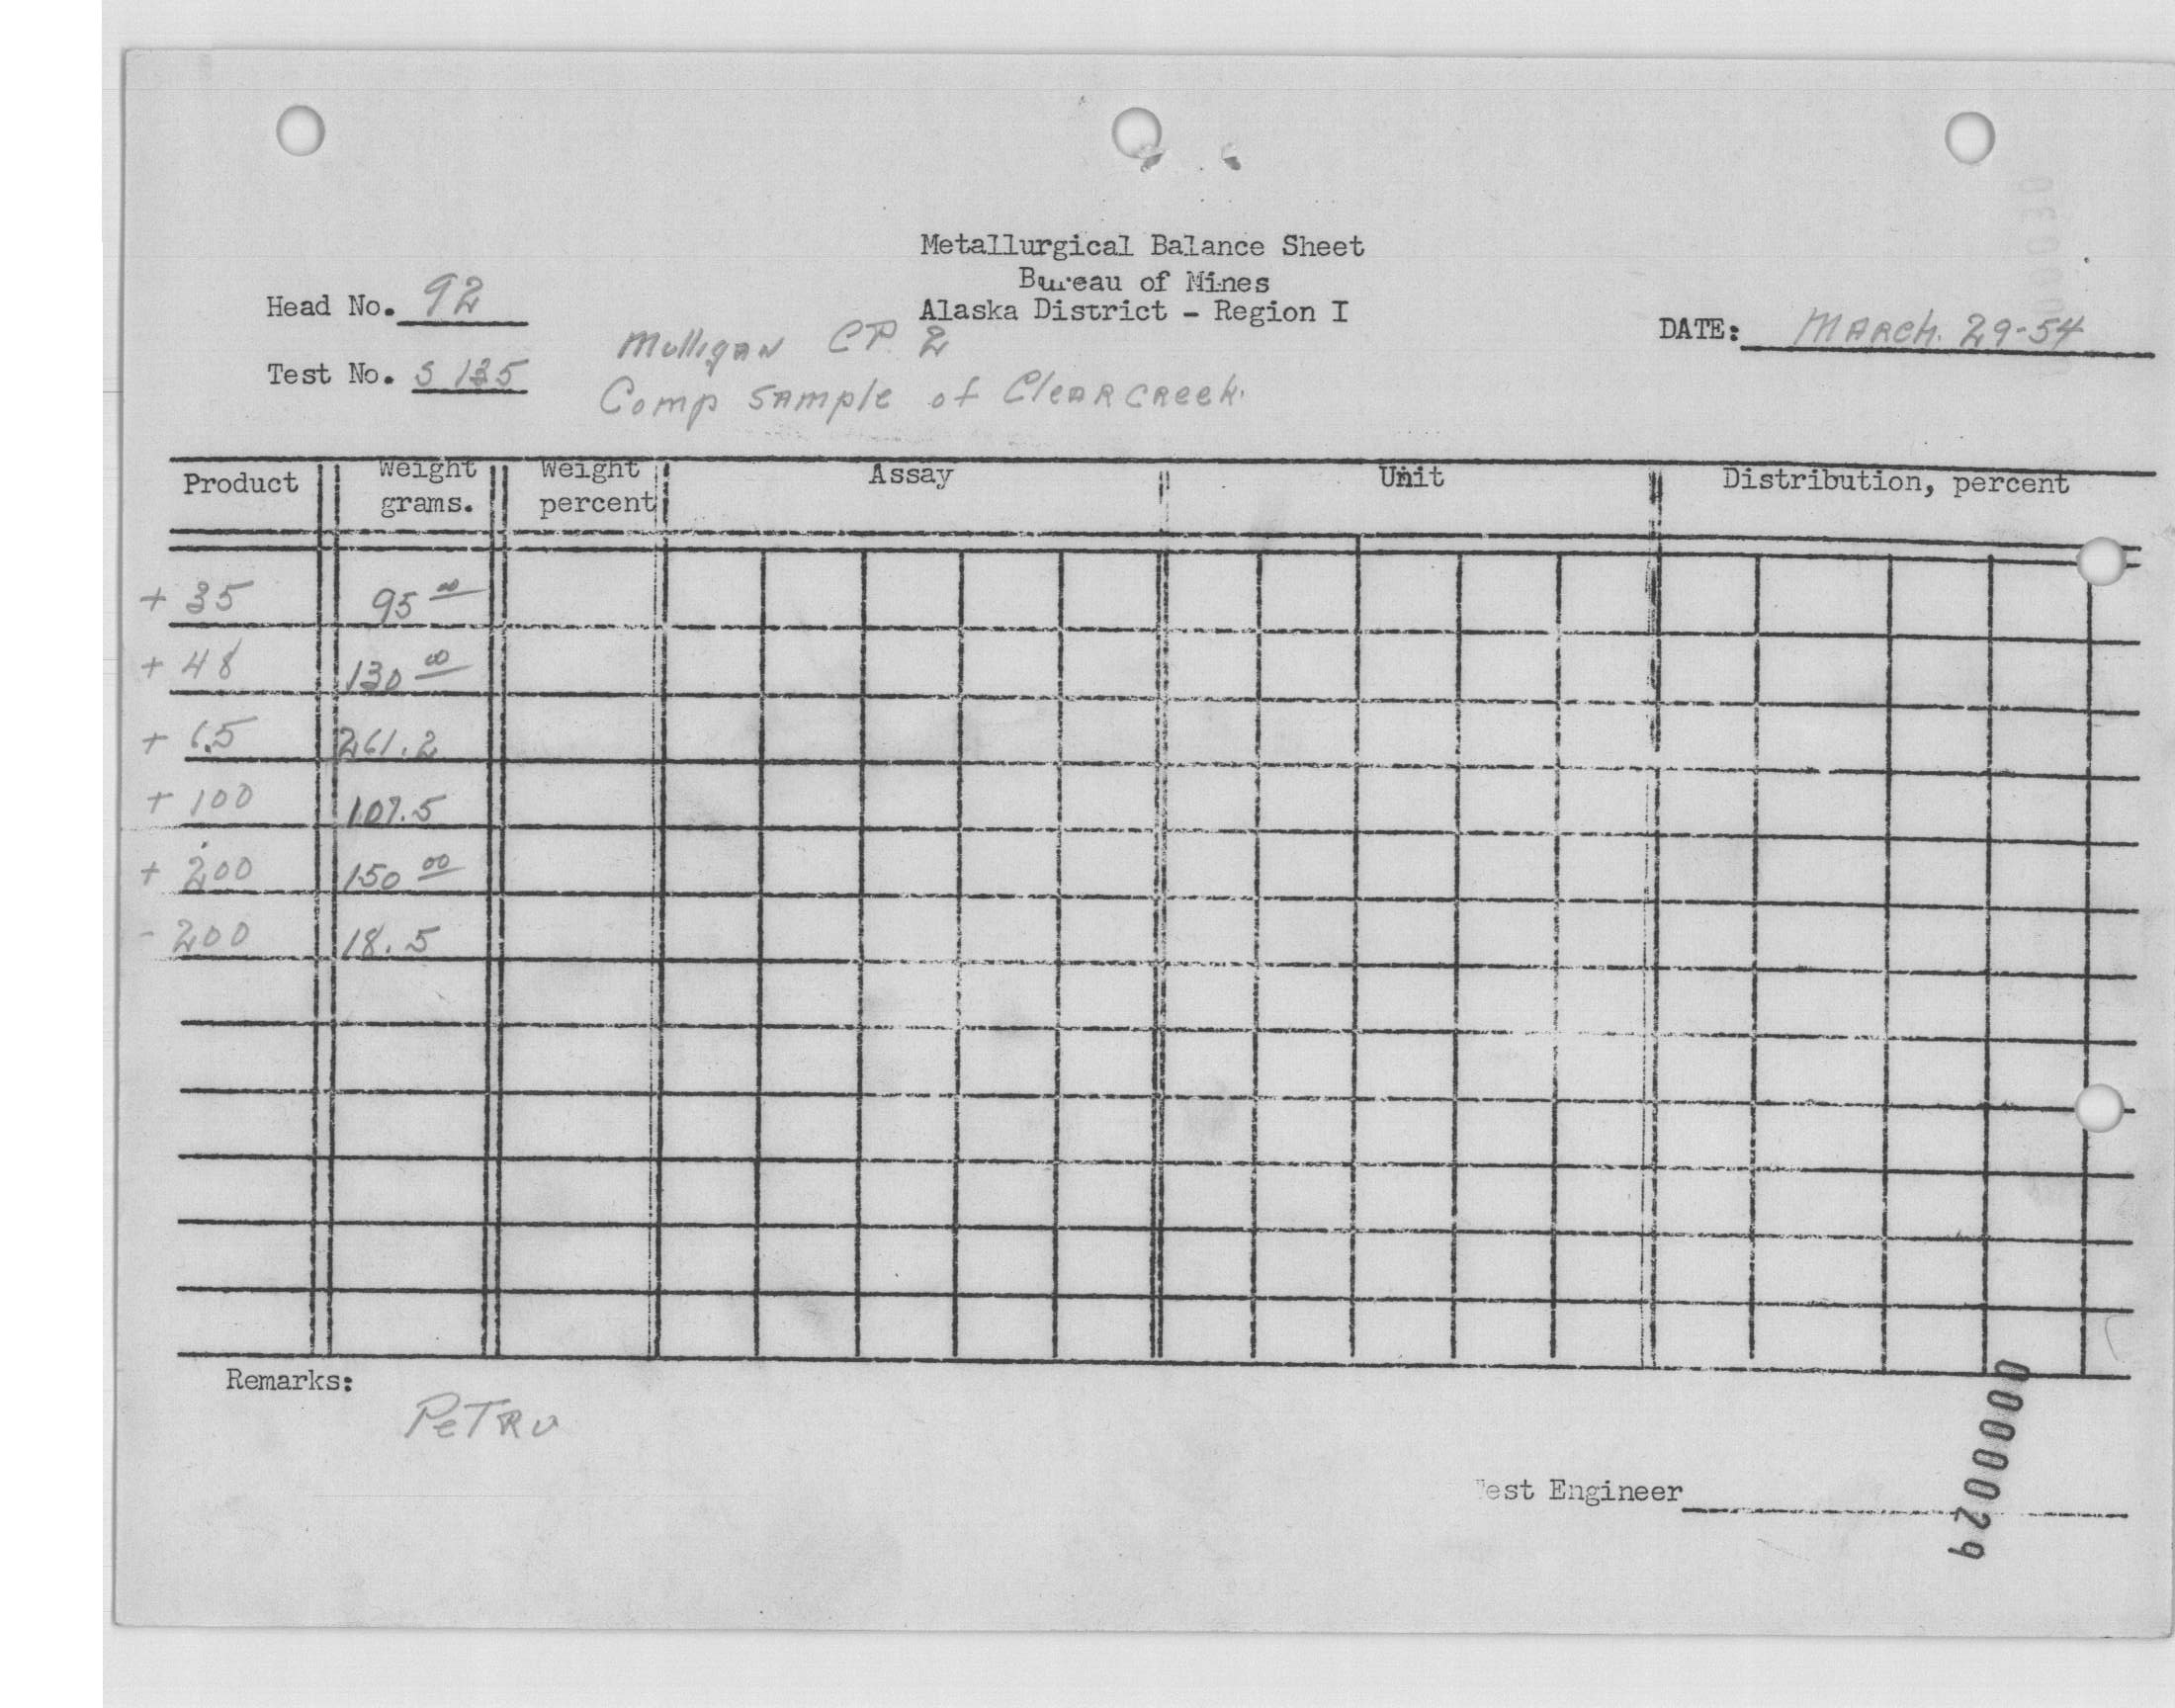 Metallurgical Balance Sheet
Bureau of Mines
Alaska District - Region I
Head No. 92
Test No. S 135
Mulligan CP. 2
Comp Sample of Clear Creek.
DATE: MARCH. 29-54
Product Weight grams. Weight percent Assay Unit Distribution, percent
+ 35 95 00
+ 48 130 00
+ 65 261.2
+ 100 107.5
+ 200 150 00
- 200 18.5
Remarks:
PETRO
Test Engineer
0000029